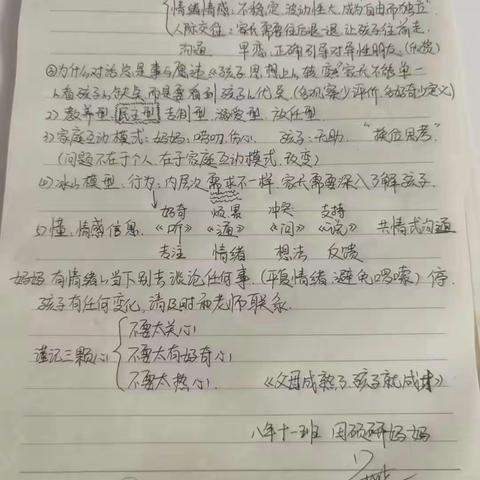 情绪情感: 不稳定, 波动性大, 成为自由而独立"
人际交往: 家长需要往后退退, 让孩子往前走.
沟通 早恋, 正确引导对异性朋友.
①为什么对治总是事与愿违《孩子思想上的转变》家长不能单一
的看孩子的缺点而是要看到孩子的优点.
2) 教养型, 民主型 专制型, 溺爱型, 放任型.
3) 家庭互动模式: 妈妈: 唠叨, 伤心. 孩子: 无助. "换位思考"
(问题不在于个人, 在于家庭互动模式, 改变)
4) 冰山模型: 行为: 内层次需求不一样. 家长需要深入了解孩子.
好奇 冲突 支持
5) 懂, 情感信息. 《听》 《通》 《问》 《说》 共情式沟通
专注 情绪 想法 反馈
妈妈有情绪的当下别去谈论任何事. (平复情绪, 避免唠嗦) 停.
孩子有任何变化, 请及时和老师联系.
谨记三颗心 不要太关心
不要太有好奇心
不要太热心. 《父母成熟了孩子就成才》
八年十一班 田硕研妈妈